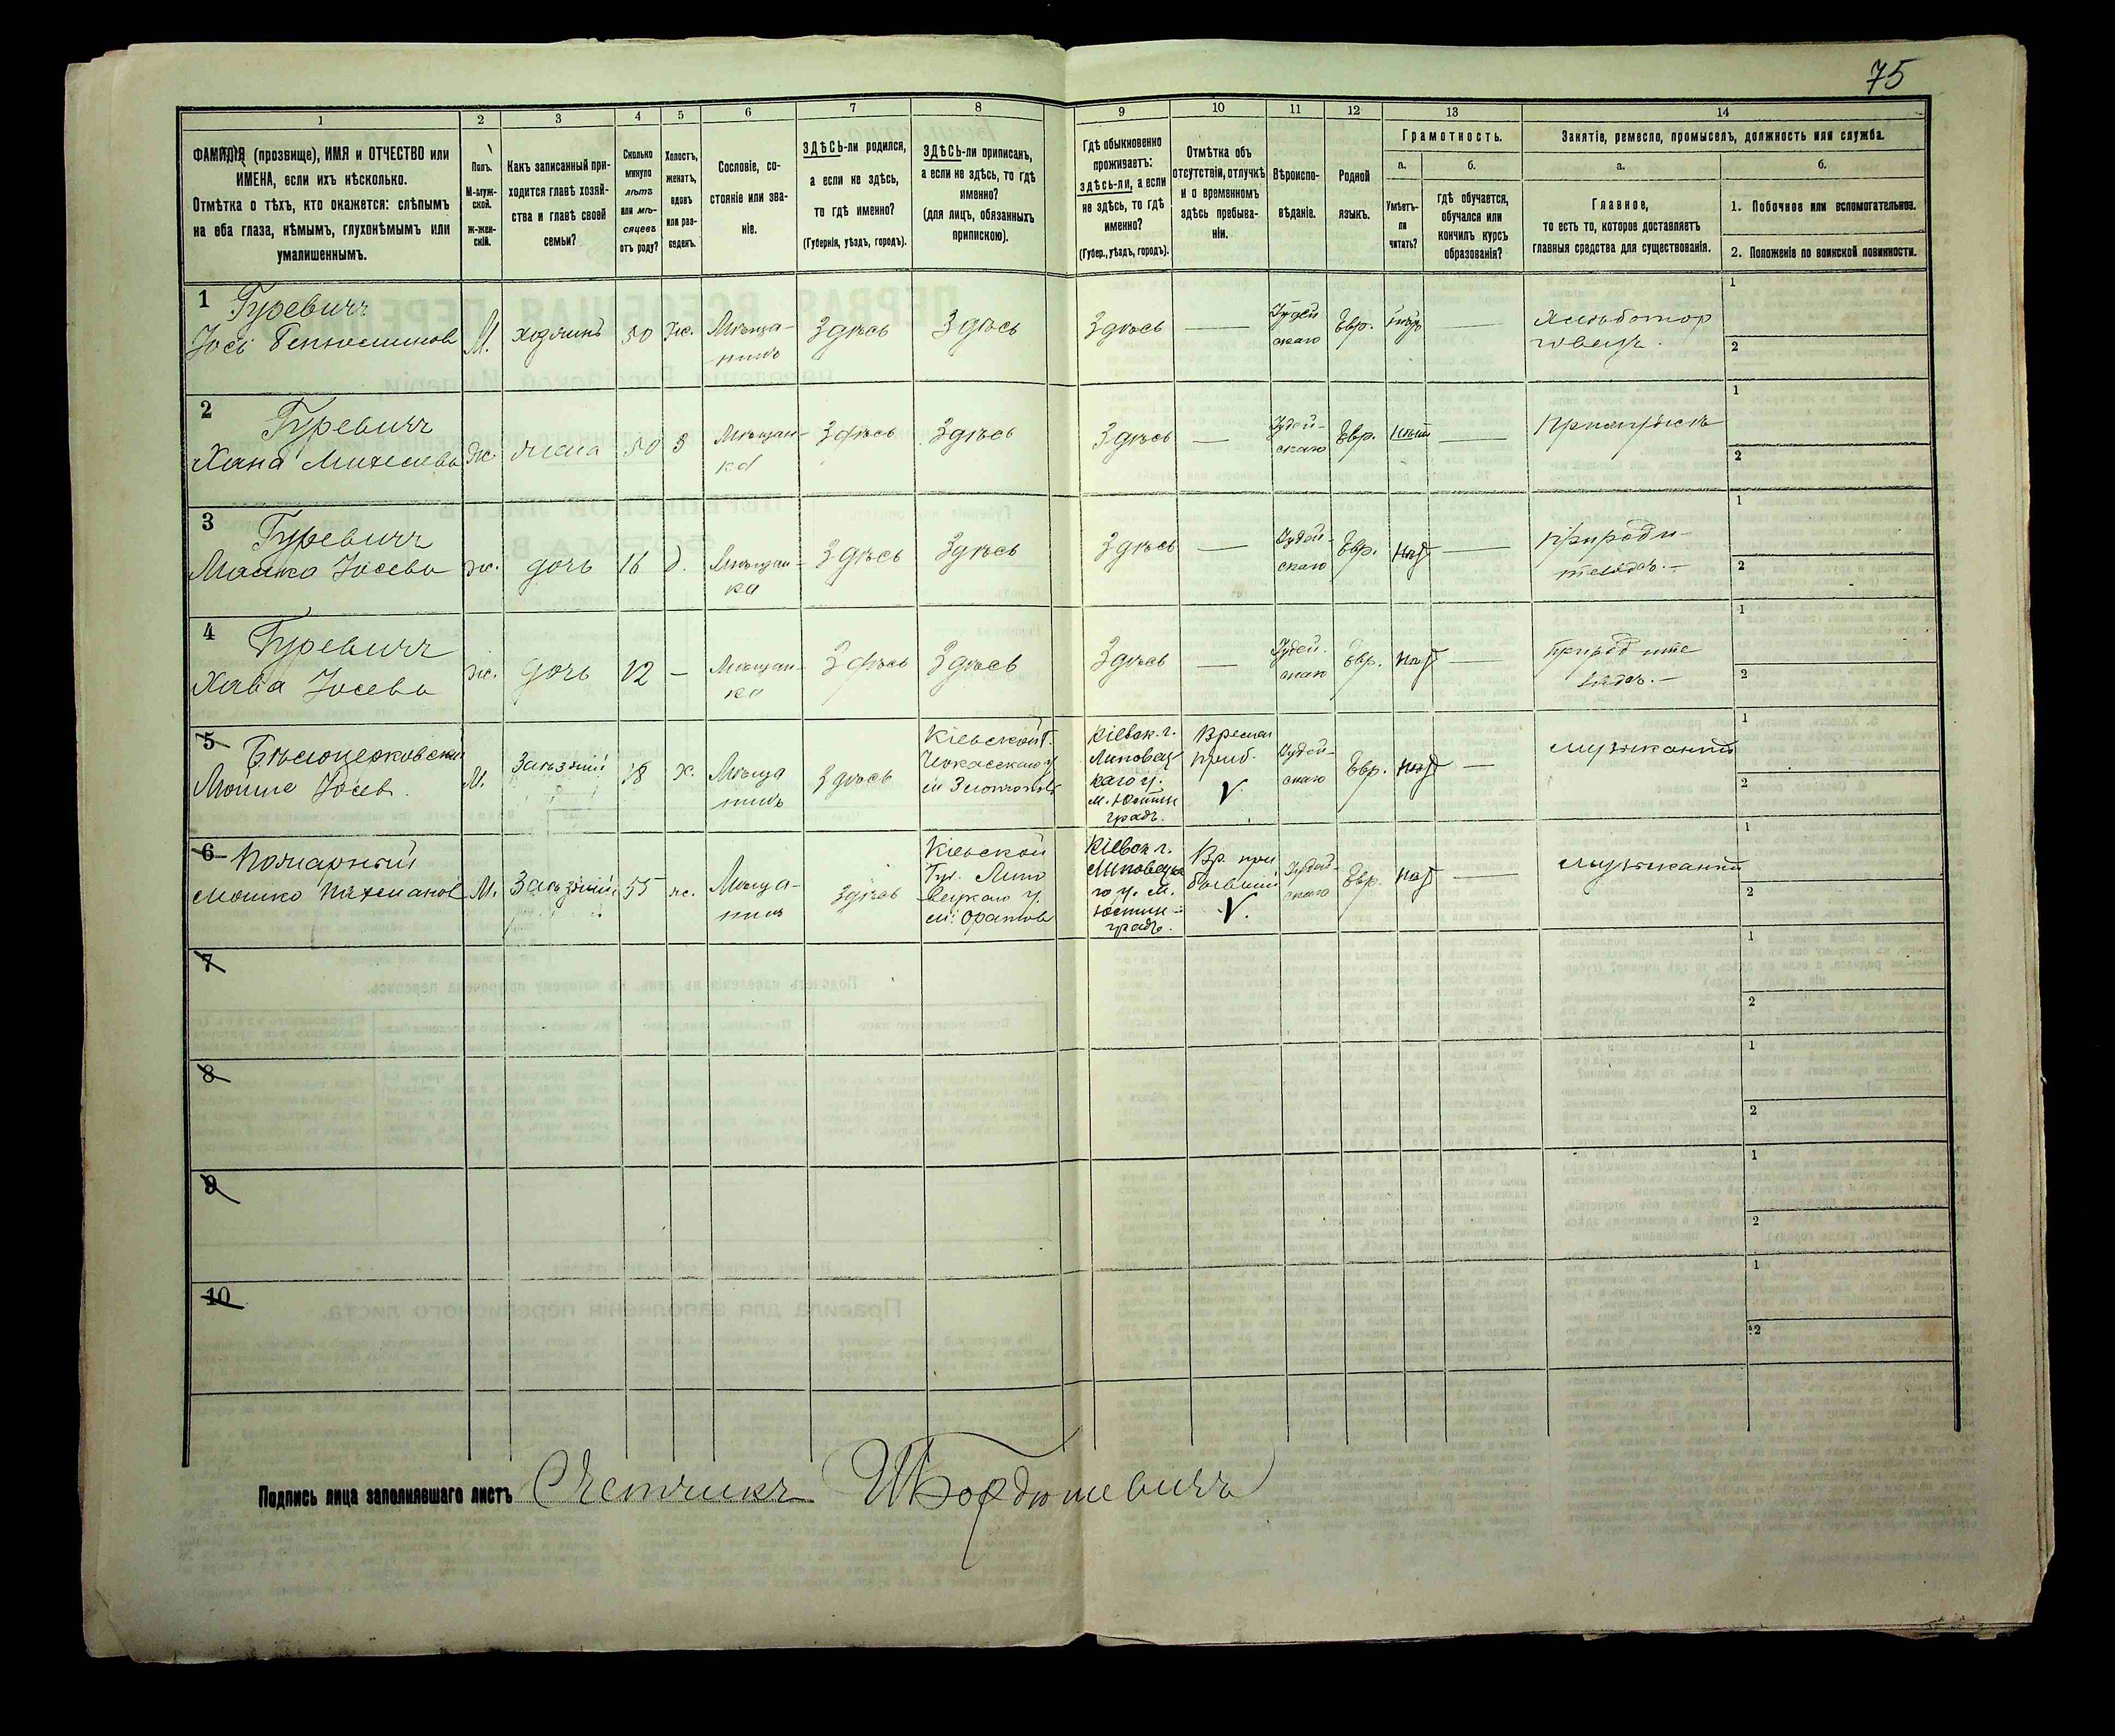 75
1
2
3
4
5
6
7
8
9
10
11
12
13
14
ФАМИЛІЯ (прозвище), ИМЯ и ОТЧЕСТВО или
ИМЕНА, если ихъ нѣсколько.
Отмѣтка о тѣхъ, кто окажется: слѣпымъ
на оба глаза, нѣмымъ, глухонѣмымъ или
умалишеннымъ.
Полъ.
М-муж-
ской.
ж-жен-
скій.
Какъ записанный при-
ходится главѣ хозяй-
ства и главѣ своей
семьи?
Сколько
минуло
лѣтъ
или мѣ-
сяцевъ
отъ роду?
Холостъ,
женатъ,
вдовъ
или раз-
веденъ.
Сословіе, со-
стояніе или зва-
ніе.
ЗДѢСЬ-ли родился,
а если не здѣсь,
то гдѣ именно?
(Губернія, уѣздъ, городъ).
ЗДѢСЬ-ли приписанъ,
а если не здѣсь, то гдѣ
именно?
(для лицъ, обязанныхъ
припискою).
Гдѣ обыкновенно
проживаетъ:
здѣсь-ли, а если
не здѣсь, то гдѣ
именно?
(Губер., уѣздъ, городъ).
Отмѣтка объ
отсутствіи, отлучкѣ
и о временномъ
здѣсь пребыва-
ніи.
Вѣроиспо-
вѣданіе.
Родной
языкъ.
Грамотность.
а.
Умѣетъ-
ли
читать?
б.
гдѣ обучается,
обучался или
кончилъ курсъ
образованія?
Занятіе, ремесло, промыселъ, должность или служба.
а.
Главное,
то есть то, которое доставляетъ
главныя средства для существованія.
б.
1. Побочное или вспомогательное.
2. Положеніе по воинской повинности.
1 Гуревичъ
Іось Беньюминовъ М. хозяинъ 50 ж. Мѣща-
нинъ Здѣсь Здѣсь Здѣсь — Іудей
скаго Евр. — 1
2
2 Гуревичъ
Хана ж. жена 50 З Мѣщан-
ка Здѣсь Здѣсь Здѣсь — Іудей-
скаго Евр. — При 1
2
3 Гуревичъ
Іосева ж. дочь 16 д. Мѣщан-
ка Здѣсь Здѣсь Здѣсь — Іудей-
скаго Евр. нѣт — при роди-
теляхъ. — 1
2
4 Гуревичъ
Хава Іосева ж. дочь 12 — Мѣщан-
ка Здѣсь Здѣсь Здѣсь — Іудей-
скаго Евр. нѣт — при родите
ляхъ. — 1
2
5 Бѣлоцерковскій
Мойше Іосев. М. Заѣзжій 18 х. Мѣща
нинъ Здѣсь
Кіевской г.
Черкасскаго у
Кіевск. г.
Липовец
каго у.
м. Юстин
градъ.
Времен
приб.
V
Іудей-
скаго Евр. нѣт — музыкантъ 1
2
6
Мошко Нахмановъ М. Заѣзжій 55 ж. Мѣща-
нинъ Здѣсь
Кіевской
Губ. Липо
вецкаго у.
м. Оратовъ
Кіевск г.
Липовецка
го у. м.
Юстин-
градъ.
Вр. при
бывшій
V.
Іудей-
скаго Евр. нѣт — музыкантъ 1
2
7 1
2
8 1
2
9 1
2
10 1
2
Подпись лица заполнявшаго листъ Счетчикъ